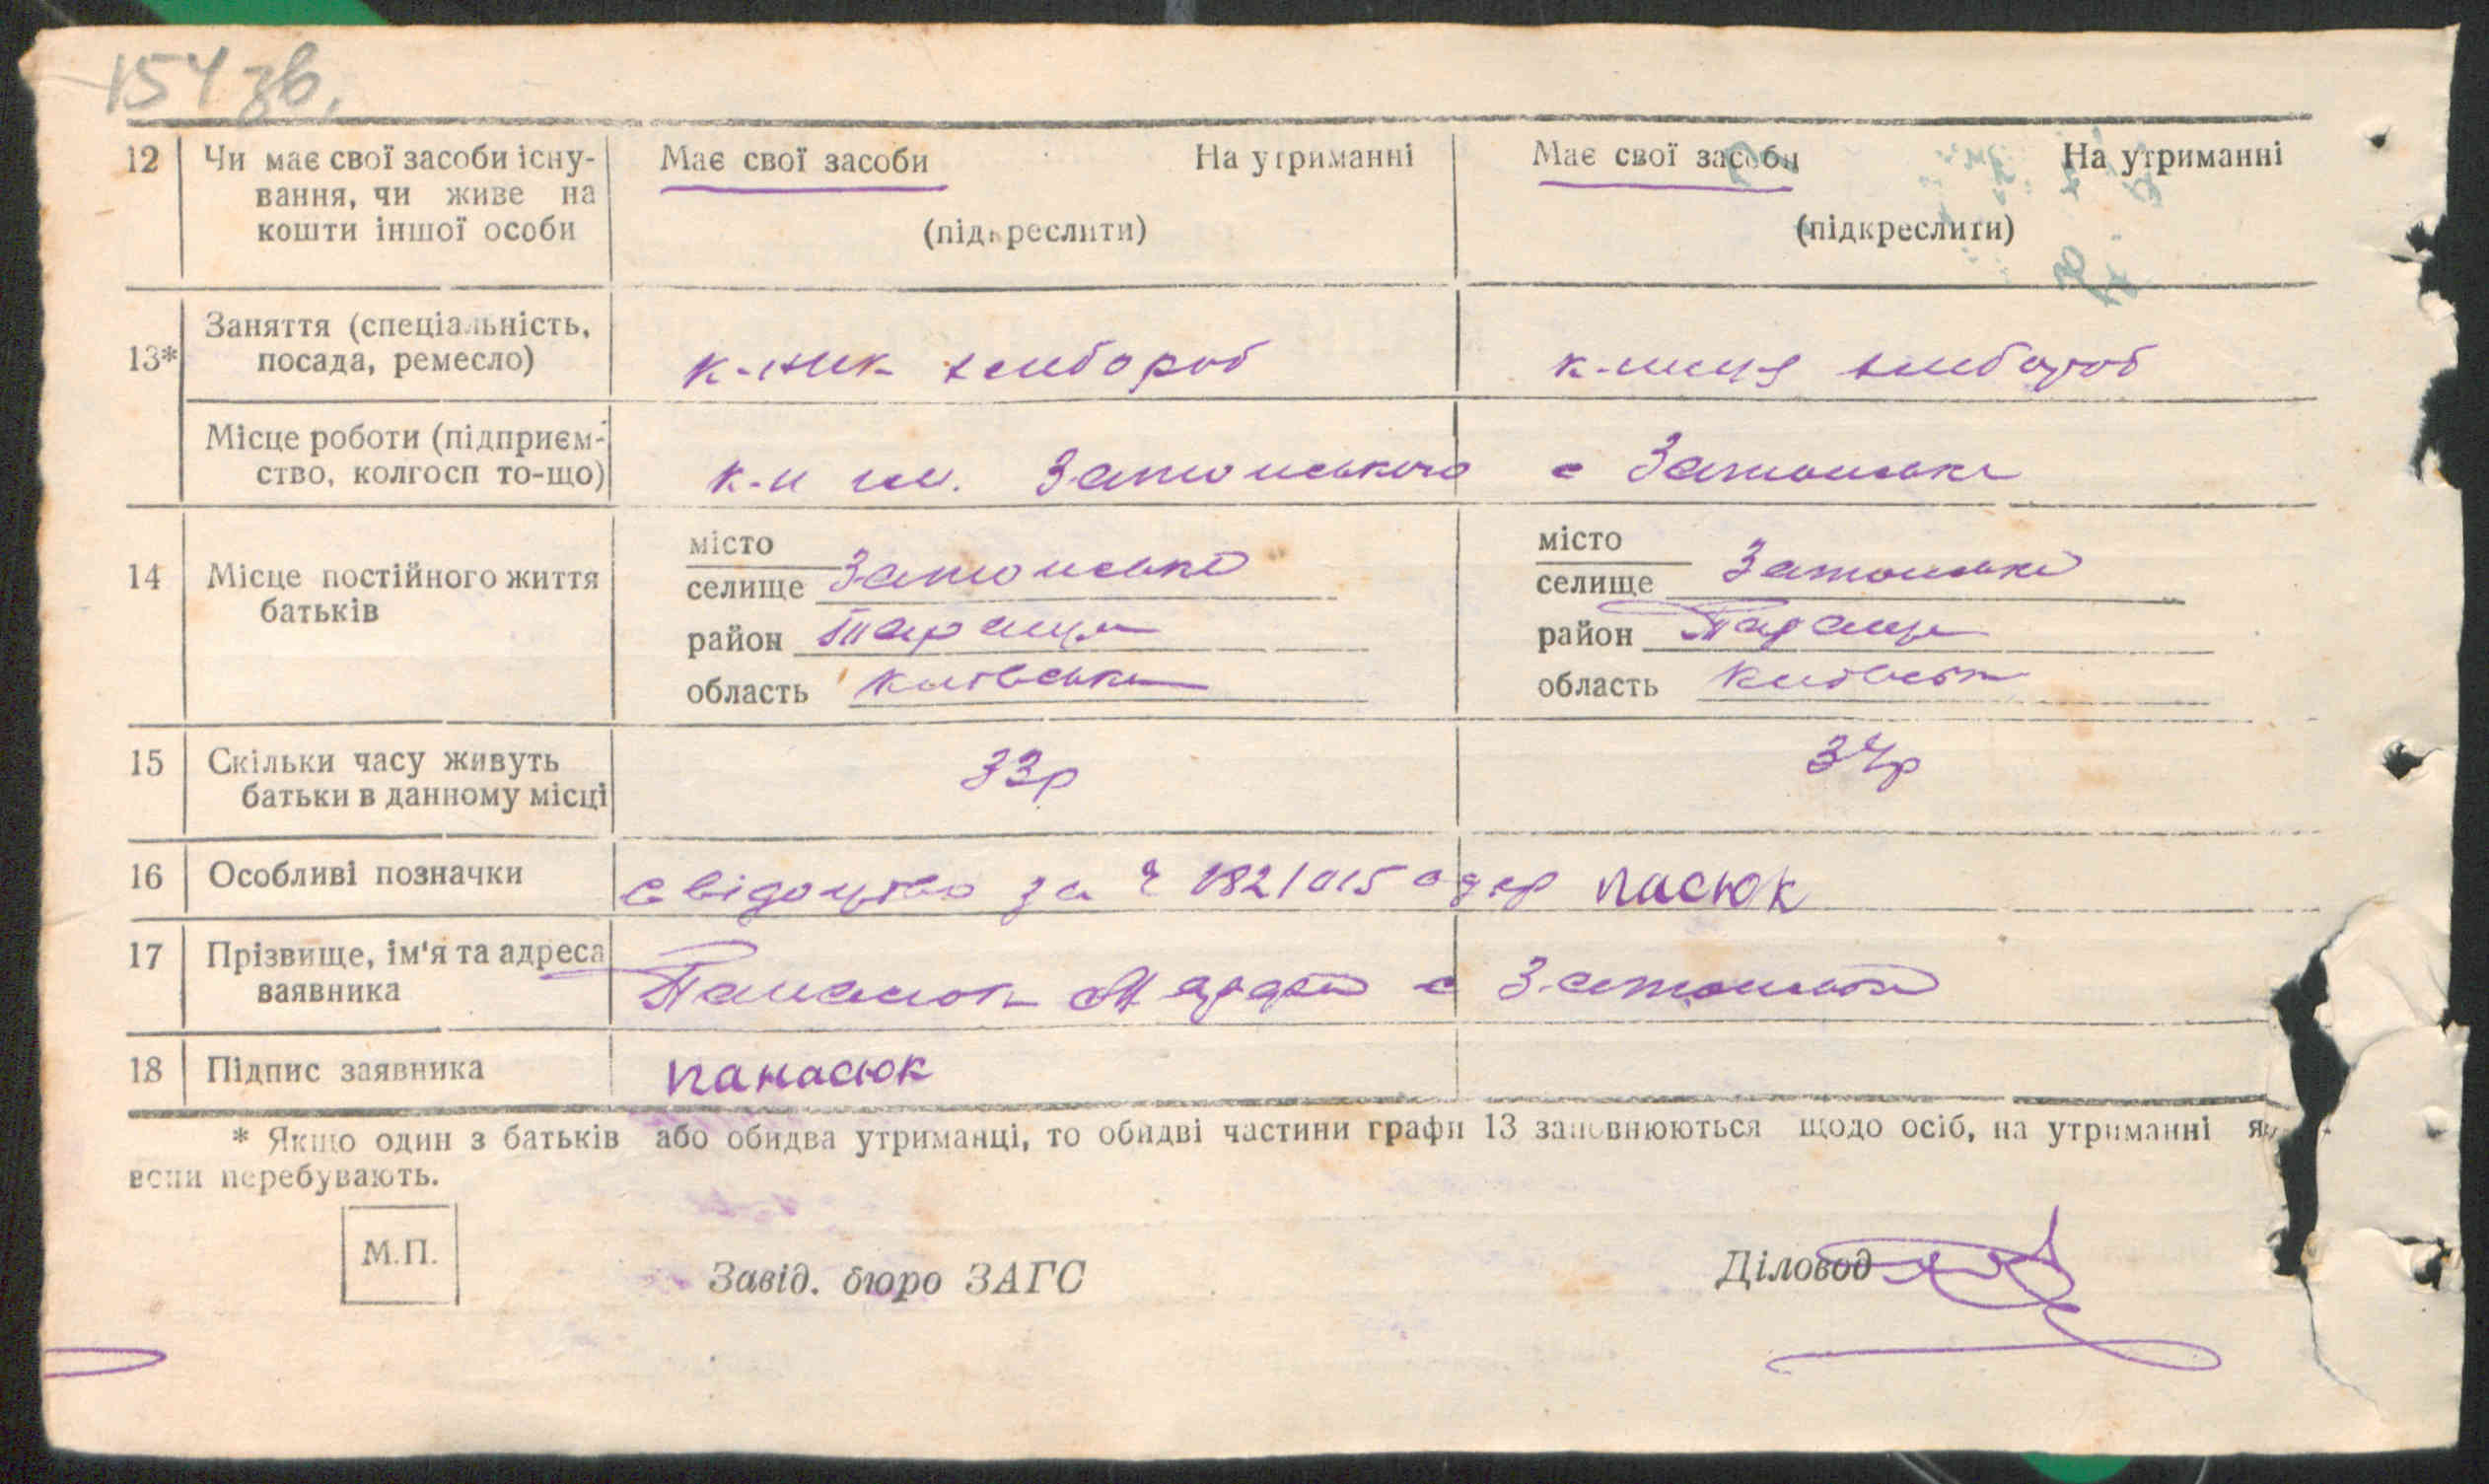 154 зв.
12 Чи має свої засоби існу-
вання, чи живе на
кошти іншої особи
Має свої засоби На утриманні
(підкреслити)
Має свої засоби На утриманні
(підкреслити)
13* Заняття (спеціальність,
посада, ремесло)
к-ник хлібороб
к-ниця хлібороб
Місце роботи (підприєм-
ство, колгосп то-що)
к-п ім. Затонського
с Затонське
14 Місце постійного життя
батьків
місто
селище Затонське
район Тараща
область Київська
місто
селище Затонське
район Тараща
область Київськ
15 Скільки часу живуть
батьки в данному місці
33р
34р
16 Особливі позначки
свідоцтво за ч 182/015 одер пасюк
17 Прізвище, ім'я та адреса
заявника
Панасюк с Затонське
18 Підпис заявника
панасюк
* Якщо один з батьків або обидва утриманці, то обидві частини графи 13 заповнюються щодо осіб, на утриманні я
вони перебувають.
М.П.
Завід. бюро ЗАГС
Діловод